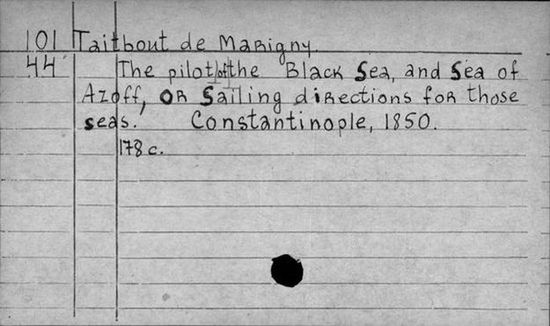 101 Taitbout de Marigny.
44 The pilot of the Black Sea, and Sea of
Azoff, or Sailing directions for those
seas. Constantinople, 1850.
178 c.